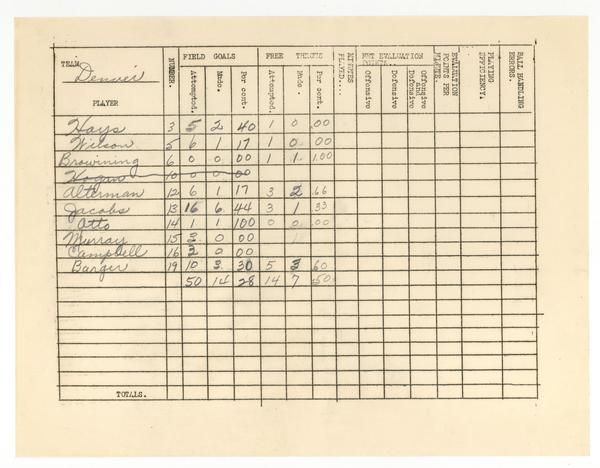 TEAM Denver NUMBER. FIELD GOALS FREE THROWS MINUTES PLAYED.... NET EVALUATION POINTS.. EVALUATION POINTS PER MINUTE. PLAYING EFFICIENCY. BALL HANDLING ERRORS.
PLAYER Attempted. Made. Per cent. Attempted. Made. Per cent. Offensive Defensive Offensive and Defensive
Hays 3 5 2 40 1 0 .00
Wilson 5 6 1 17 1 0 .00
Browining 6 0 0 00 1 1 1.00
Hogan 10 0 0 00
Alterman 12 6 1 17 3 2 .66
Jacobs 13 16 6 44 3 1 .33
Otto 14 1 1 100 0 0 .00
Murray 15 3 0 00
Campbell 16 3 0 00
Barger 19 10 3 30 5 3 .60
50 14 28 14 7 .50
TOTALS.